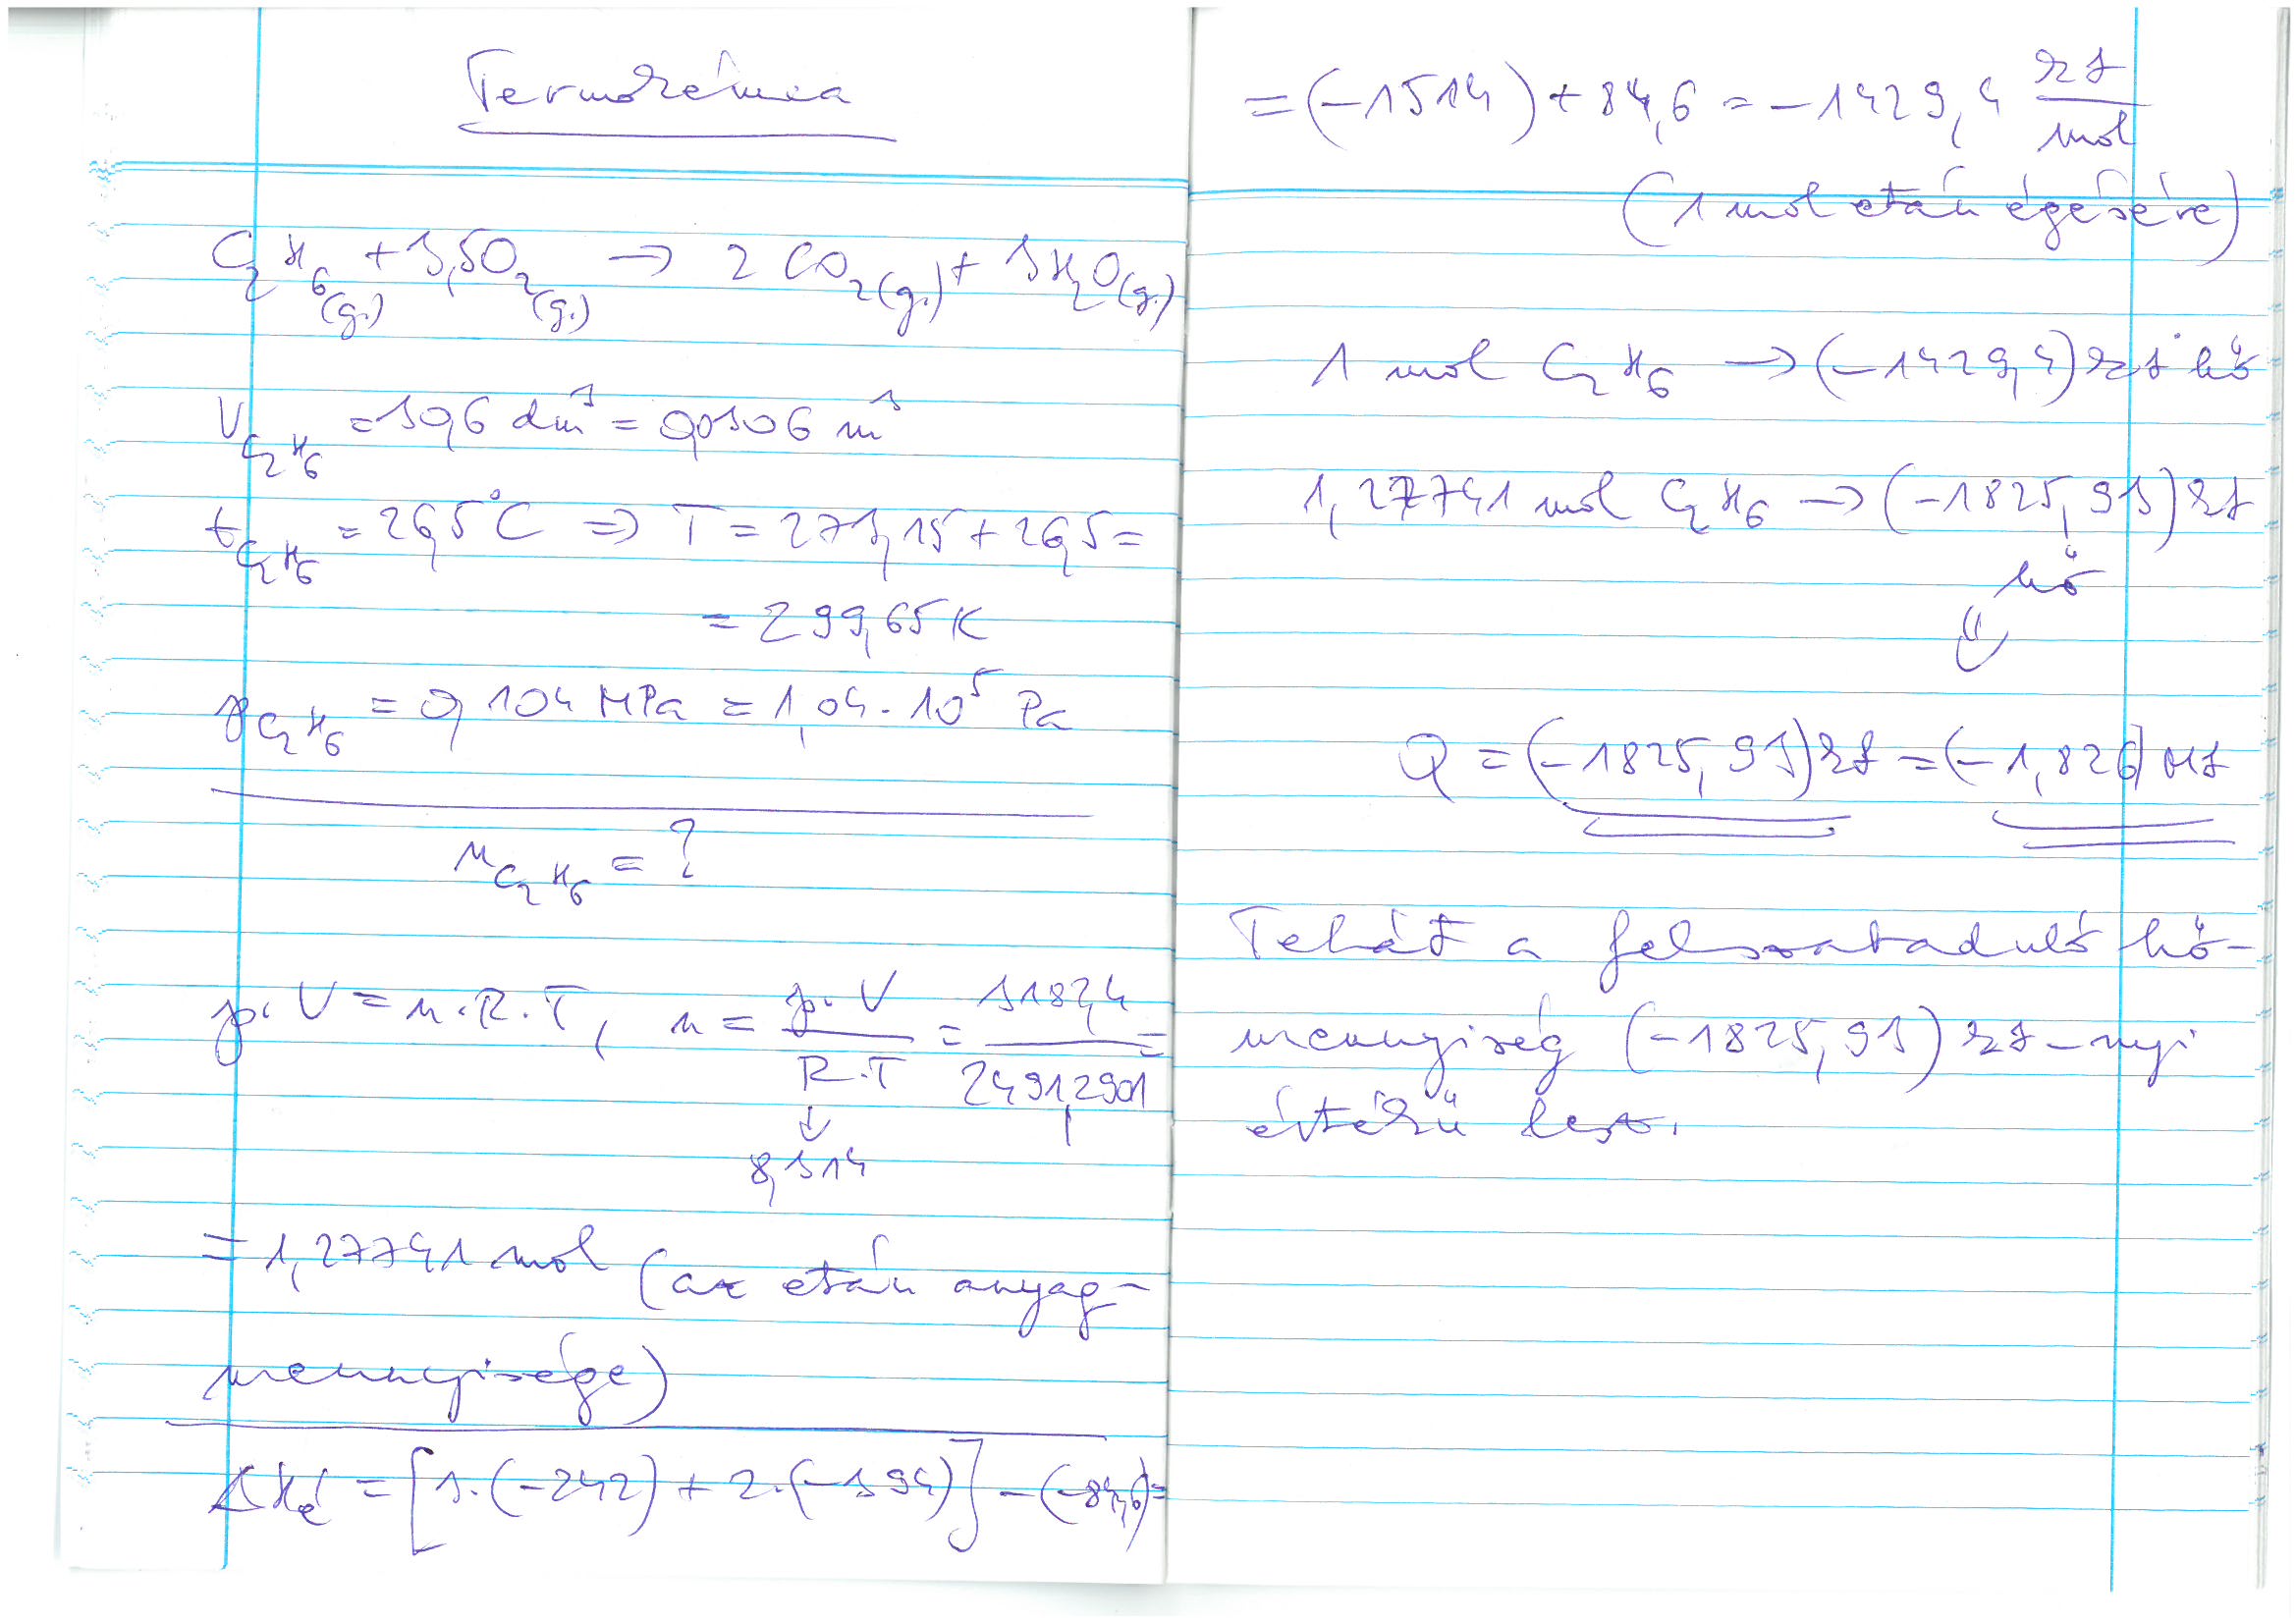 Termokémia
C₂H₆(g.) + 3,5O₂(g.) → 2 CO₂(g.) + 3H₂O(g.)
V C₂H₆ = 30,6 dm³ = 0,0306 m³
t C₂H₆ = 26,5°C ⇒ T = 273,15 + 26,5 =
= 299,65 K
p C₂H₆ = 0,104 MPa = 1,04 · 10⁵ Pa
n C₂H₆ = ?
p · V = n · R · T, n = p · V / R · T = 3182,4 / 2491,2901 =
↓
8,314
= 1,27741 mol (az etán anyag-
mennyisége)
ΔHé = [3 · (-242) + 2 · (-394)] - (-84,6) =
= (-1514) + 84,6 = -1429,4 kJ/mol
(1 mol etán égésére)
1 mol C₂H₆ → (-1429,4) kJ hő
1,27741 mol C₂H₆ → (-1825,93) kJ
hő
⇓
Q = (-1825,93) kJ = (-1,826) MJ
Tehát a felszabaduló hő-
mennyiség (-1825,93) kJ-nyi
értékű lesz.